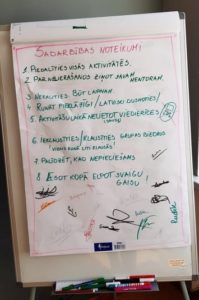 SADARBĪBAS NOTEIKUMI
1 PIEDALĪTIES VISĀS AKTIVITĀTĒS.
2 PAR NOSKAŅOJUMU ZIŅOT SAVAM
MENTORAM.
3 NEBAUTIES BŪT LAPNAM.
4 RUNĀT PIEKLĀJĪGI / LATVISKI
5. AKTIVITĀŠU LAIKĀ NELIETOT VIEDIERĪCES
6 IEKLAUSĪTIES / KLAUSĪTIES GRUPAS BIEDROS
VIENS RUNĀ CITI KLAUSĀS
7 PALĪDZĒT, KAD NEPIECIEŠAMS
8 ESOT KOPĀ ELPOT SVAIGU
GAISU